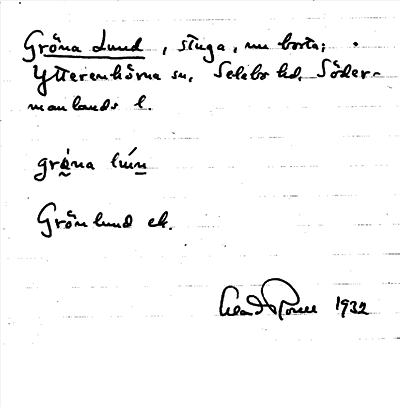 Gröna Lund, stuga, nu borta;
Ytterenhörna sn, Selebo hd, Söder-
manlands l.
gröna lún
Grönlund ek.
1932